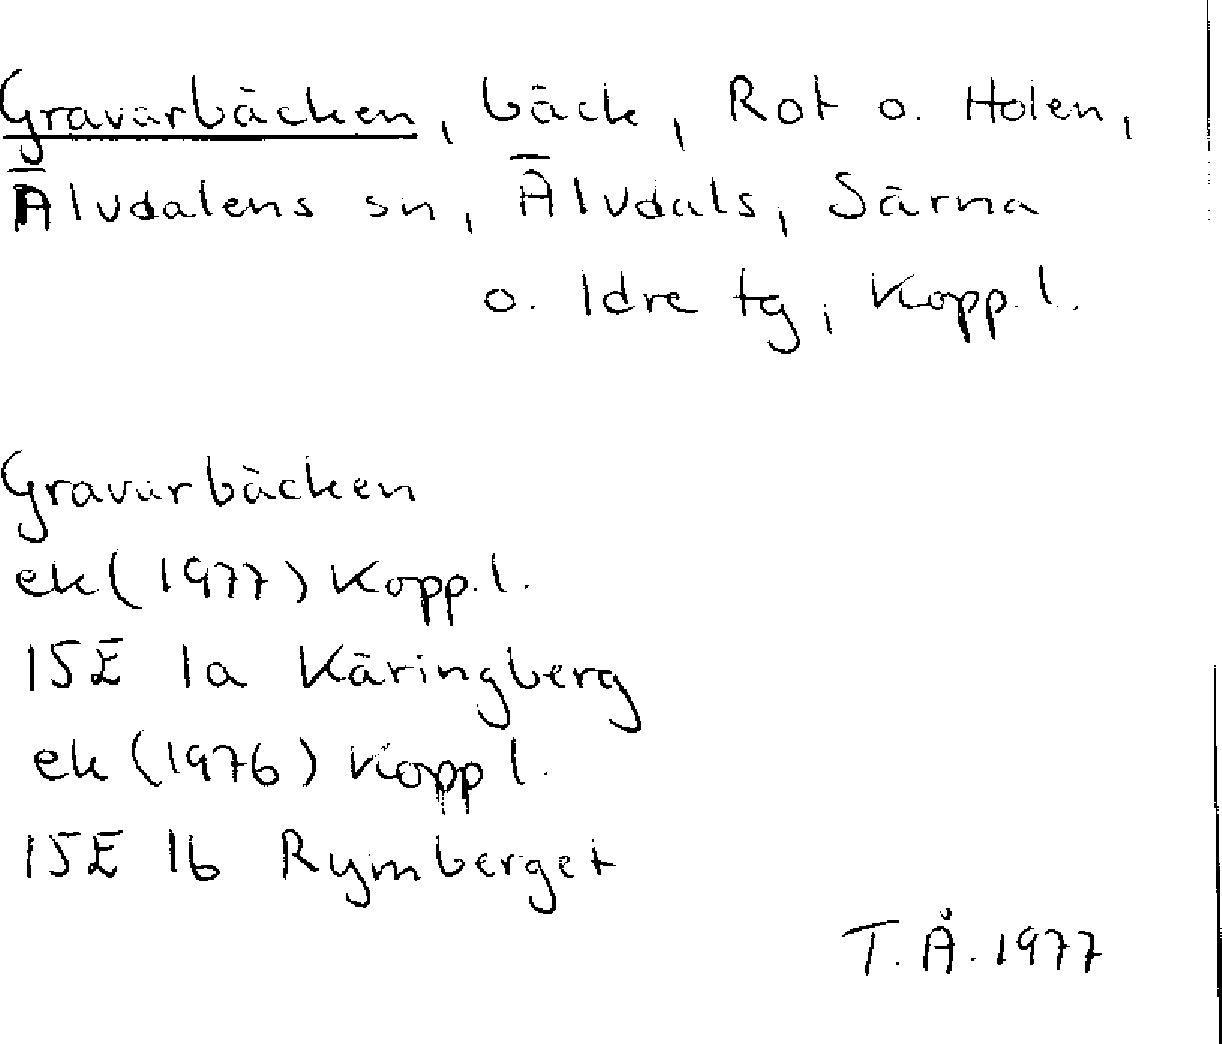 Gravarbäcken, bäck, Rot o. Holen,
Älvdalens sn, Älvdals, Särna
o. Idre tg, Kopp.l.
Gravarbäcken
ek (1977) Kopp.l.
15E 1a Käringberg
ek (1976) Kopp l.
15E 1b Rymberget
T. Å. 1977